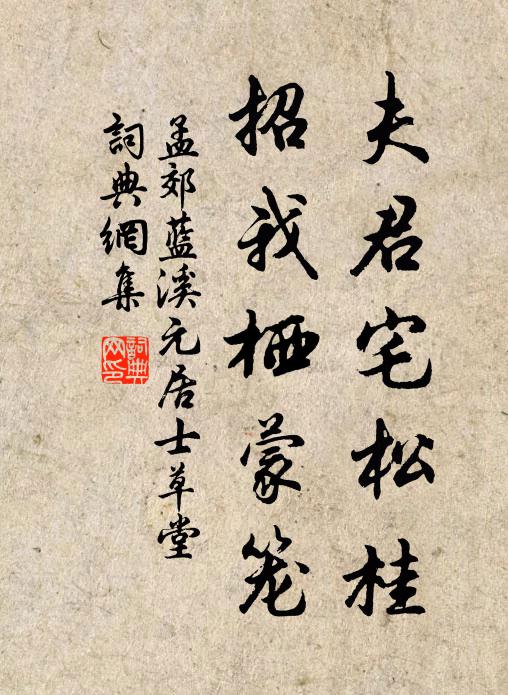 夫君宅松桂
招我栖蒙笼
孟郊蓝溪元居士草堂
詞典網集
詞典网印